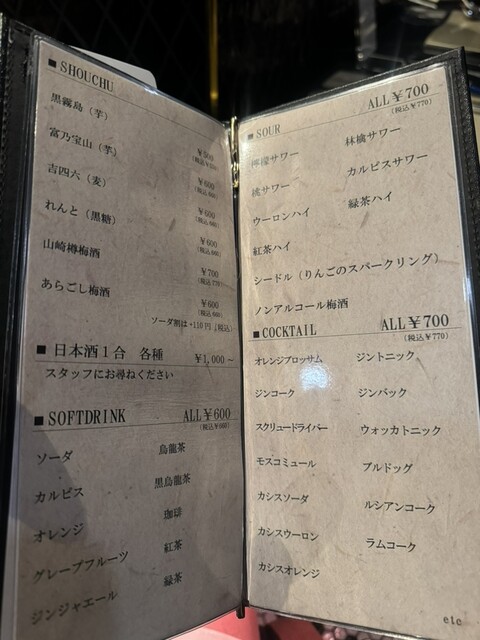 ■ SHOUCHU
黒霧島（芋）
¥500
富乃宝山（芋）
¥600
(税込660)
吉四六（麦）
¥600
(税込660)
れんと（黒糖）
¥600
(税込660)
山崎樽梅酒
¥700
(税込770)
あらごし梅酒
¥600
(税込660)
ソーダ割は+110円（税込）
■ 日本酒１合 各種 ¥1,000～
スタッフにお尋ねください
■ SOFTDRINK ALL¥600
(税込¥660)
ソーダ 烏龍茶
カルピス 黒烏龍茶
オレンジ 珈琲
グレープフルーツ 紅茶
ジンジャエール 緑茶
■ SOUR ALL¥700
(税込¥770)
檸檬サワー 林檎サワー
桃サワー カルピスサワー
ウーロンハイ 緑茶ハイ
紅茶ハイ
シードル（りんごのスパークリング）
ノンアルコール梅酒
■ COCKTAIL ALL¥700
(税込¥770)
オレンジブロッサム ジントニック
ジンコーク ジンバック
スクリュードライバー ウォッカトニック
モスコミュール ブルドッグ
カシスソーダ ルシアンコーク
カシスウーロン ラムコーク
カシスオレンジ
etc